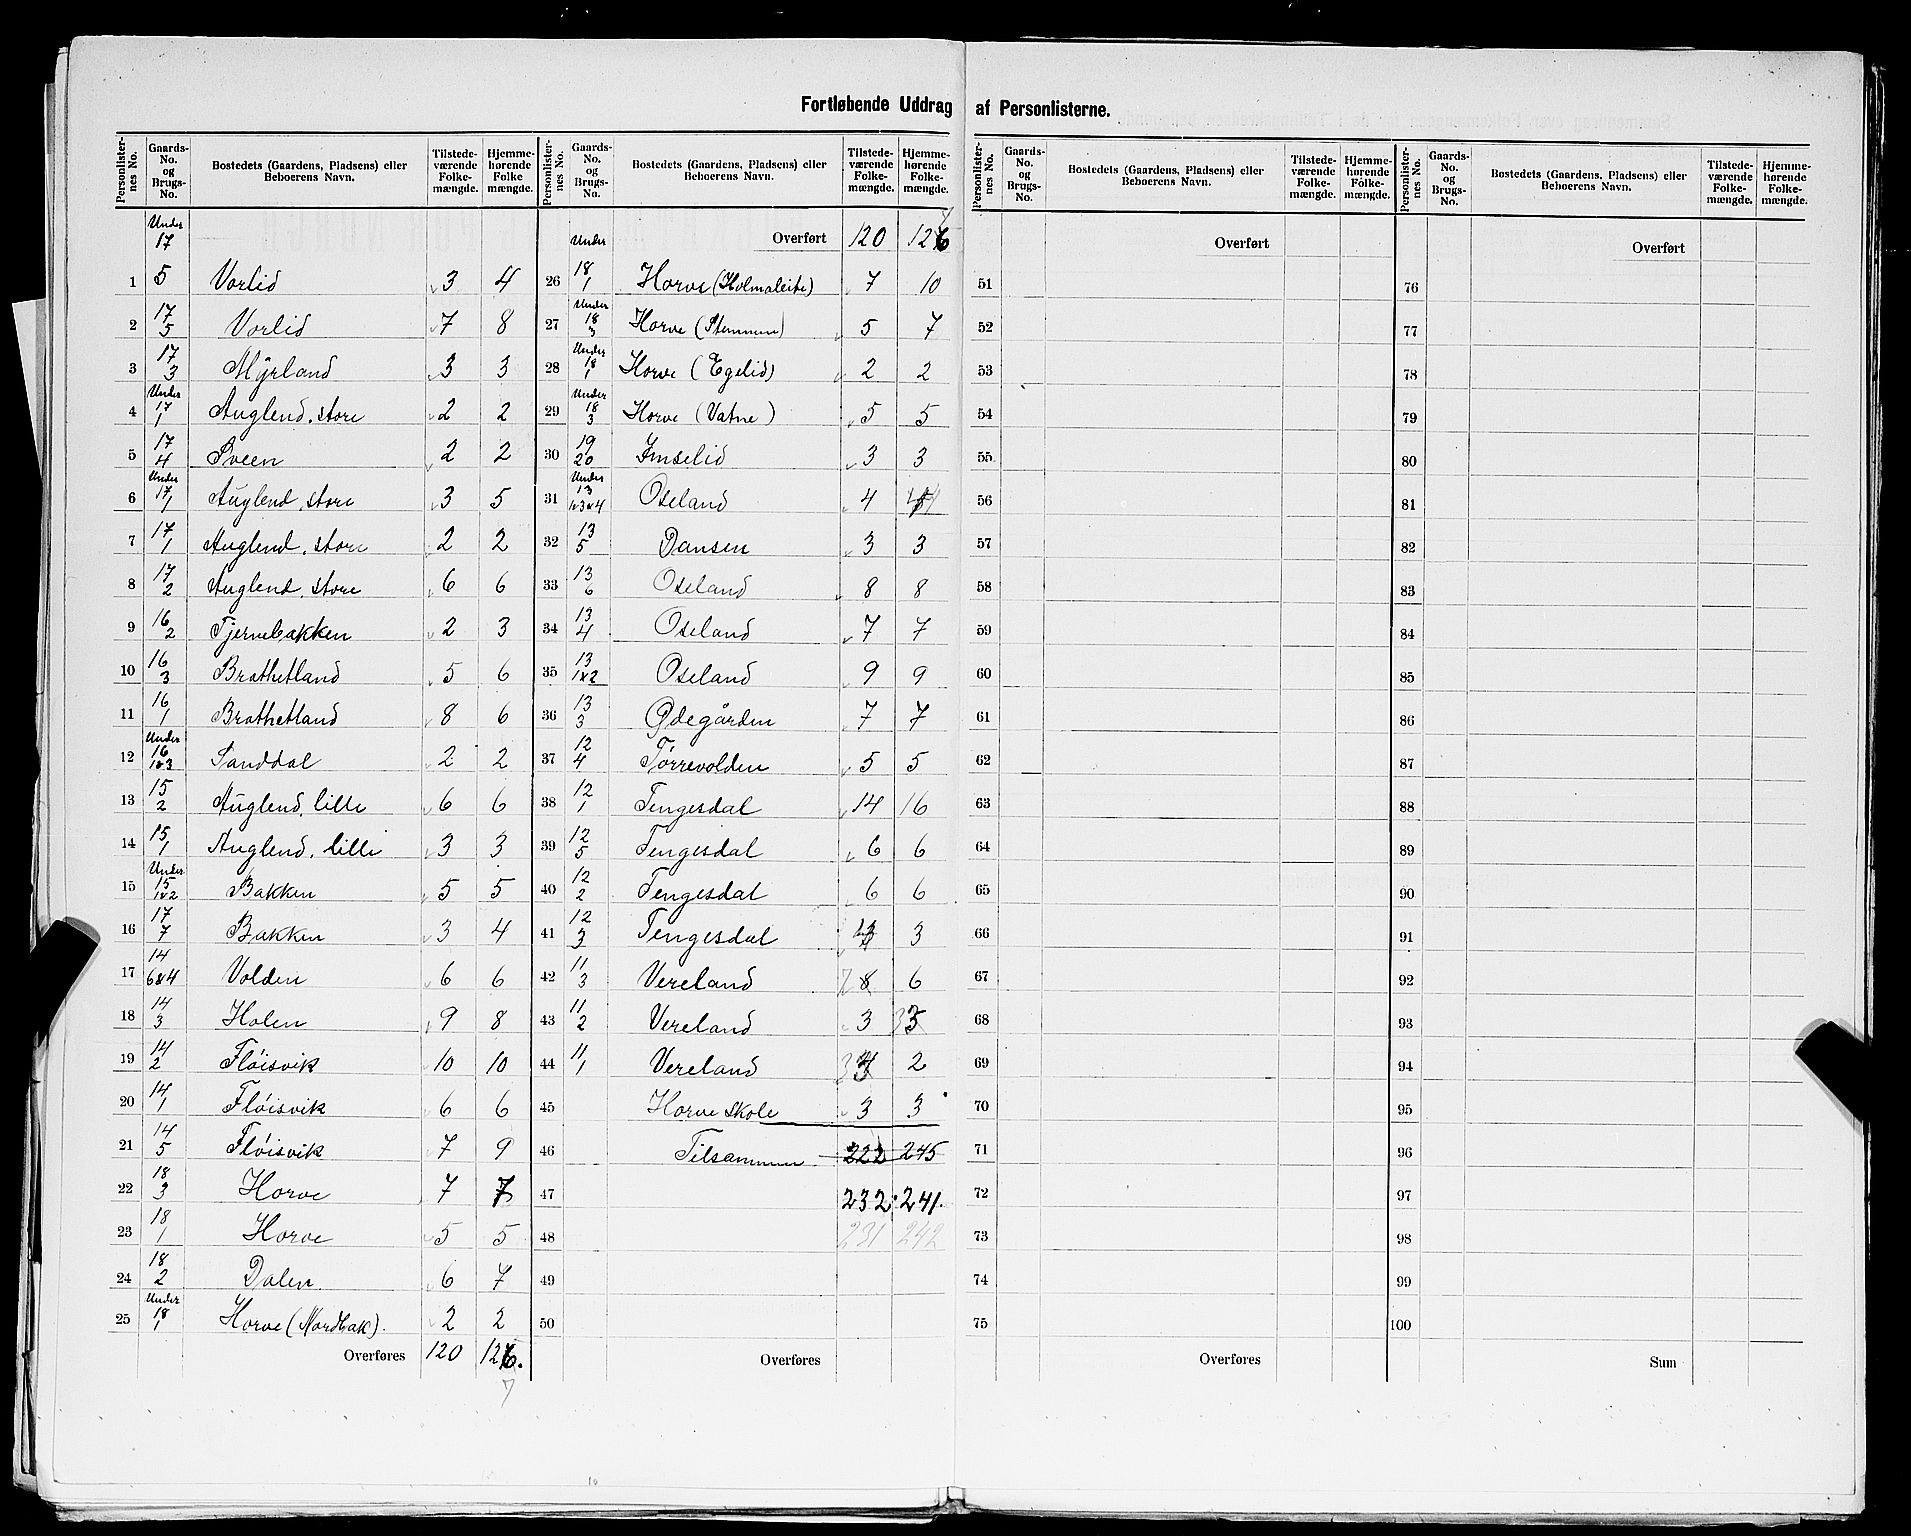 Fortløbende Uddrag af Personlisternes.
Personlister-nes No. | Gaards-No. og Brugs-No. | Bostedets (Gaardens, Pladsens) eller Beboerens Navn. | Tilstede-værende Folke-mængde. | Hjemme-hørende Folke mængde.
1 | Under 17 5 | Vorlid | 3 | 4
2 | 17 5 | Vorlid | 7 | 8
3 | 17 3 | Myrland | 3 | 3
4 | Under 17 1 | Auglend, store | 2 | 2
5 | 17 4 | Sveen | 2 | 2
6 | Under 17 1 | Auglend, store | 3 | 5
7 | 17 1 | Auglend, store | 2 | 2
8 | 17 2 | Auglend, store | 6 | 6
9 | 16 2 | Tjernebakken | 2 | 3
10 | 16 3 | Brathetland | 5 | 6
11 | 16 1 | Brathetland | 8 | 6
12 | Under 16 1&3 | Sanddal | 2 | 2
13 | 15 2 | Auglend, lille | 6 | 6
14 | 15 1 | Auglend, lille | 3 | 3
15 | Under 15 1&2 | Bakken | 5 | 5
16 | 17 7 | Bakken | 3 | 4
17 | 14 6&4 | Volden | 6 | 6
18 | 14 3 | Holen | 9 | 8
19 | 14 2 | Fløisvik | 10 | 10
20 | 14 1 | Fløisvik | 6 | 6
21 | 14 5 | Fløisvik | 7 | 9
22 | 18 3 | Horve | 7 | 7
23 | 18 1 | Horve | 5 | 5
24 | 18 2 | Dalen | 6 | 7
25 | Under 18 1 | Horve (Nordbak). | 2 | 2
Overføres | 120 | 126. 7
Personlister-nes No. | Gaards-No. og Brugs-No. | Bostedets (Gaardens, Pladsens) eller Beboerens Navn. | Tilstede-værende Folke-mængde. | Hjemme-hørende Folke-mængde.
Overført | 120 | 126 7
26 | Under 18 1 | Horve (Holmaleite) | 7 | 10
27 | Under 18 3 | Horve (Stemmen) | 5 | 7
28 | Under 18 1 | Horve (Egelid) | 2 | 2
29 | Under 18 3 | Horve (Vatne) | 5 | 5
30 | 19 20 | Imselid | 3 | 3
31 | Under 13 1&3&4 | Oseland | 4 | 4
32 | 13 5 | Dansen | 3 | 3
33 | 13 6 | Oseland | 8 | 8
34 | 13 4 | Oseland | 7 | 7
35 | 13 1&2 | Oseland | 9 | 9
36 | 13 3 | Ødegården | 7 | 7
37 | 12 4 | Tørrevolden | 5 | 5
38 | 12 1 | Tengesdal | 14 | 16
39 | 12 5 | Tengesdal | 6 | 6
40 | 12 2 | Tengesdal | 6 | 6
41 | 12 3 | Tengesdal | 3
42 | 11 3 | Vereland | 7 8 | 6
43 | 11 2 | Vereland | 3 | 3
44 | 11 1 | Vereland | 3 | 2
45 | Horve skole | 3 | 3
46 | Tilsammen | 222 | 245
47 | 232. | 241.
48 | 231 | 242
49
50
Overføres
Personlister-nes No. | Gaards-No. og Brugs-No. | Bostedets (Gaardens, Pladsens) eller Beboerens Navn. | Tilstede-værende Folke-mængde. | Hjemme-hørende Folke-mængde.
Overført
51
52
53
54
55
56
57
58
59
60
61
62
63
64
65
66
67
68
69
70
71
72
73
74
75
Overføres
Personlister-nes No. | Gaards-No. og Brugs-No. | Bostedets (Gaardens, Pladsens) eller Beboerens Navn. | Tilstede-værende Folke-mængde. | Hjemme-hørende Folke-mængde.
Overført
76
77
78
79
80
81
82
83
84
85
86
87
88
89
90
91
92
93
94
95
96
97
98
99
100
Sum